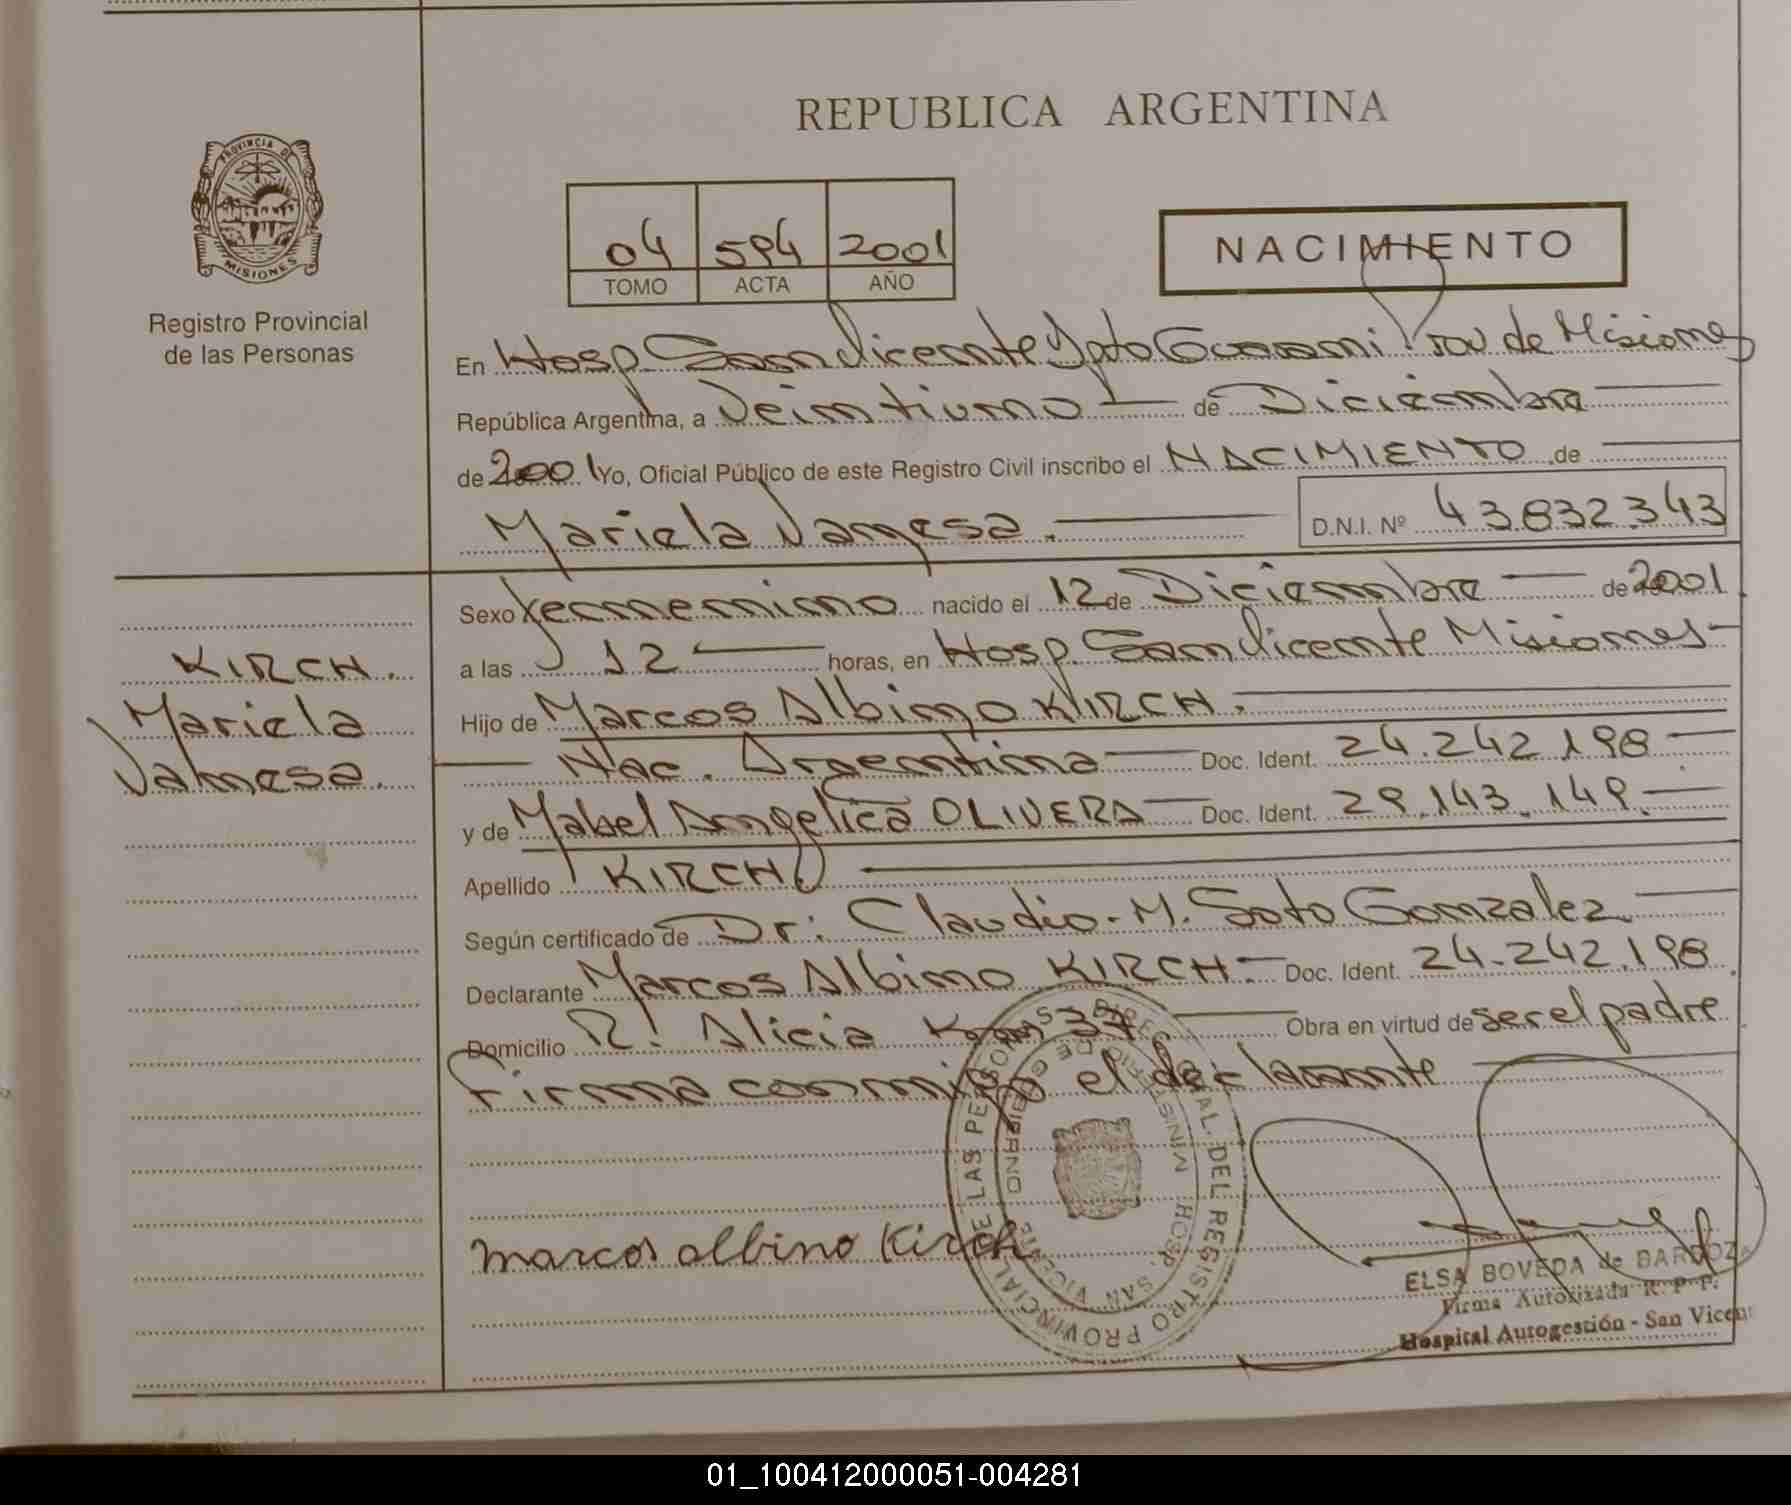 REPUBLICA ARGENTINA
PROVINCIA DE
MISIONES
Registro Provincial
de las Personas
04 594 2001
TOMO ACTA AÑO
NACIMIENTO
En Hosp. San Vicente Dpto Guarani Prov de Misiones
República Argentina, a Veintiuno de Diciembre
de 2001 Yo, Oficial Público de este Registro Civil inscribo el NACIMIENTO de
Mariela Vanesa. D.N.I. Nº 43832343
Sexo Femenino nacido el 12 de Diciembre de 2001.
a las 12 horas, en Hosp. San Vicente Misiones
Hijo de Marcos Albino KIRCH.
Nac. Argentina Doc. Ident. 24.242.198
y de Mabel Angelica OLIVERA Doc. Ident. 29.143.149.
Apellido KIRCH
Según certificado de Dr: Claudio M. Soto Gonzalez
Declarante Marcos Albino KIRCH. Doc. Ident. 24.242.198.
Domicilio Alicia 37 Obra en virtud de ser el padre
Firma conmigo el declarante
KIRCH.
Mariela
Vanesa.
marcos albino Kirch
DIREC. GRAL. DEL REGISTRO PROVINCIAL DE LAS PERSONAS
MINISTERIO DE GOBIERNO
HOSP. SAN VICENTE
ELSA BOVEDA de BARBOZA
Firma Autorizada R. P. P.
Hospital Autogestión - San Vicen
01_100412000051-004281